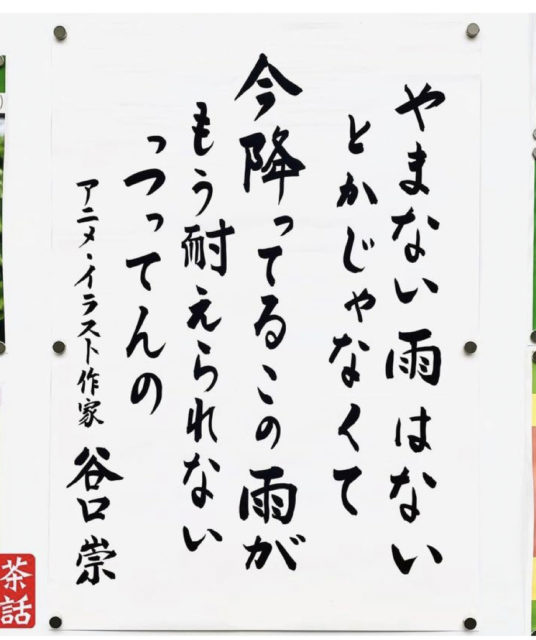 やまない雨はない
とかじゃなくて
今降ってるこの雨が
もう耐えられない
っつってんの
アニメ・イラスト作家 谷口崇
茶話